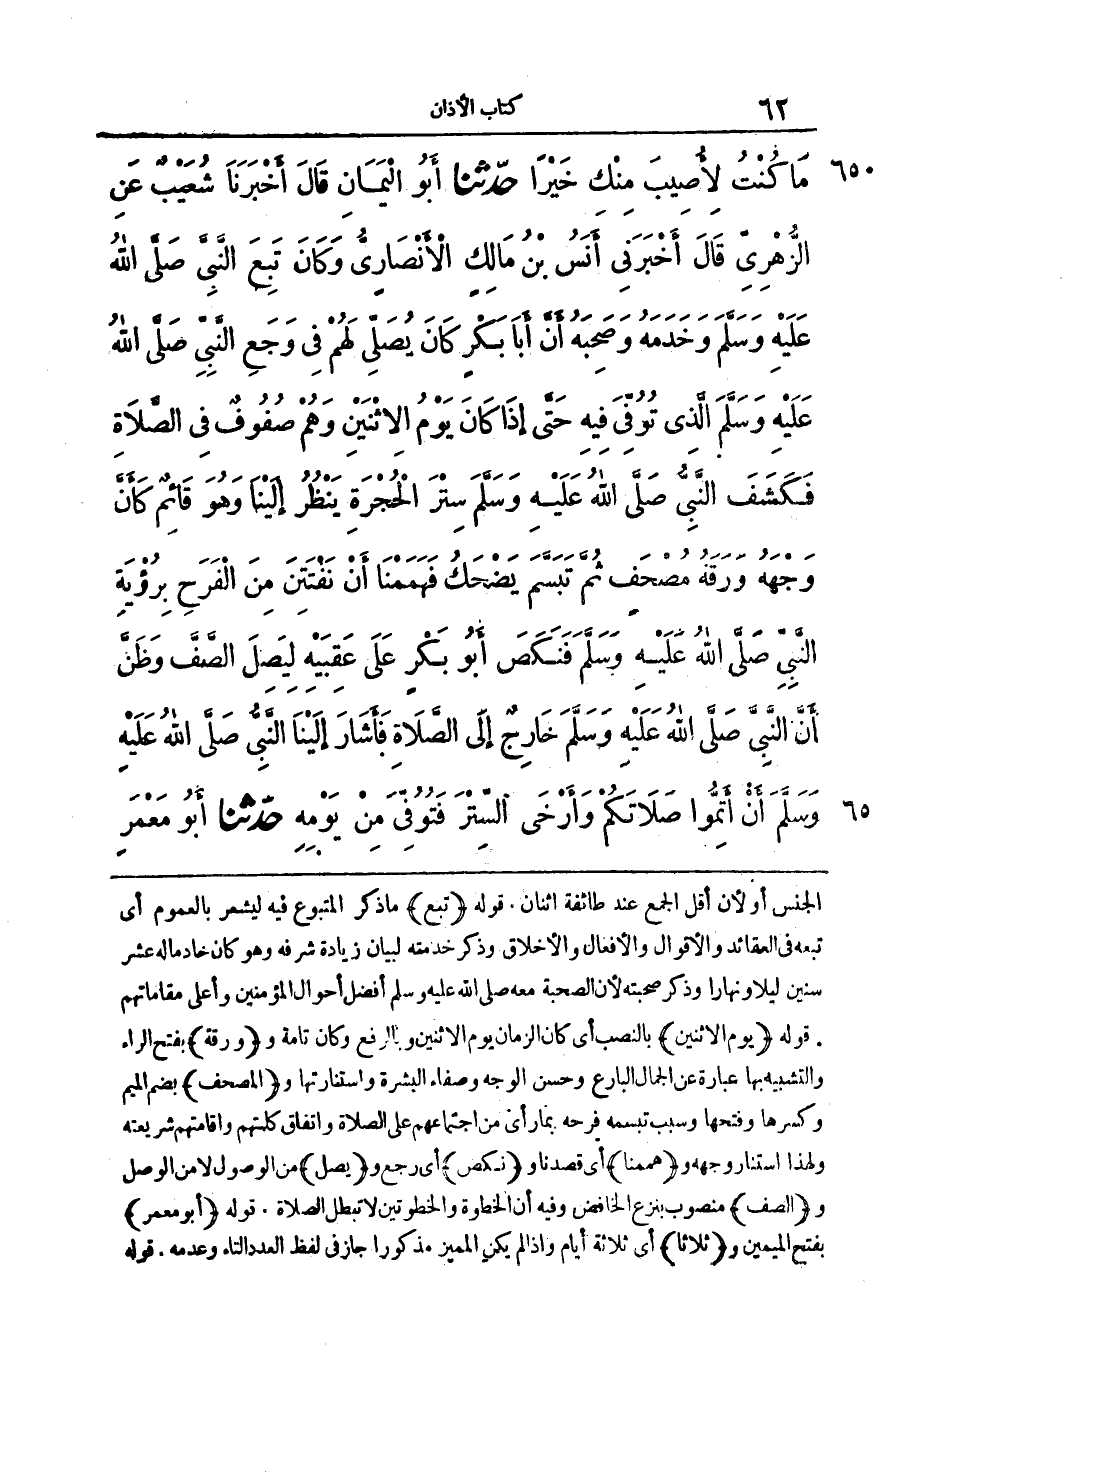 ٦٢ كتاب الأذان
٦٥٠ مَا كُنْتُ لِأُصِيبَ مِنْكِ خَيْرًا حَدَّثنا أَبُو الْيَمَانِ قَالَ أَخْبَرَنَا شُعَيْبٌ عَنِ
الزُّهْرِيِّ قَالَ أَخْبَرَنِي أَنَسُ بْنُ مَالِكٍ الْأَنْصَارِيُّ وَكَانَ تَبِعَ النَّبِيَّ صَلَّى اللهُ
عَلَيْهِ وَسَلَّمَ وَخَدَمَهُ وَصَحِبَهُ أَنَّ أَبَا بَكْرٍ كَانَ يُصَلِّي لَهُمْ فِي وَجَعِ النَّبِيِّ صَلَّى اللهُ
عَلَيْهِ وَسَلَّمَ الَّذِي تُوُفِّيَ فِيهِ حَتَّى إِذَا كَانَ يَوْمُ الِاثْنَيْنِ وَهُمْ صُفُوفٌ فِي الصَّلَاةِ
فَكَشَفَ النَّبِيُّ صَلَّى اللهُ عَلَيْهِ وَسَلَّمَ سِتْرَ الْحُجْرَةِ يَنْظُرُ إِلَيْنَا وَهُوَ قَائِمٌ كَأَنَّ
وَجْهَهُ وَرَقَةُ مُصْحَفٍ ثُمَّ تَبَسَّمَ يَضْحَكُ فَهَمَمْنَا أَنْ نَفْتَتِنَ مِنَ الْفَرَحِ بِرُؤْيَةِ
النَّبِيِّ صَلَّى اللهُ عَلَيْهِ وَسَلَّمَ فَنَكَصَ أَبُو بَكْرٍ عَلَى عَقِبَيْهِ لِيَصِلَ الصَّفَّ وَظَنَّ
أَنَّ النَّبِيَّ صَلَّى اللهُ عَلَيْهِ وَسَلَّمَ خَارِجٌ إِلَى الصَّلَاةِ فَأَشَارَ إِلَيْنَا النَّبِيُّ صَلَّى اللهُ عَلَيْهِ
٦٥ وَسَلَّمَ أَنْ أَتِمُّوا صَلَاتَكُمْ وَأَرْخَى السِّتْرَ فَتُوُفِّيَ مِنْ يَوْمِهِ حَدَّثنا أَبُو مَعْمَرٍ
الجنس أو لأن أقل الجمع عند طائفة اثنان. قوله ﴿تبع﴾ ماذكر المتبوع فيه ليشعر بالعموم أى
تبعه فى العقائد والأقوال والأفعال والأخلاق وذكر خدمته لبيان زيادة شرفه وهو كان خادما له عشر
سنين ليلا ونهارا وذكر صحبته لأن الصحبة معه صلى الله عليه وسلم أفضل أحوال المؤمنين وأعلى مقاماتهم
. قوله ﴿يوم الاثنين﴾ بالنصب أى كان الزمان يوم الاثنين وبالرفع وكان تامة و﴿ورقة﴾ بفتح الراء
والتشبيه بها عبارة عن الجمال البارع وحسن الوجه وصفاء البشرة واستنارتها و﴿المصحف﴾ بضم الميم
وكسرها وفتحها وسبب تبسمه فرحه بما رأى من اجتماعهم على الصلاة واتفاق كلمتهم واقامتهم شريعته
ولهذا استنار وجهه و﴿هممنا﴾ أى قصدنا و﴿نكص﴾ أى رجع و﴿يصل﴾ من الوصول لا من الوصل
و﴿الصف﴾ منصوب بنزع الخافض وفيه أن الخطوة والخطوتين لا تبطل الصلاة . قوله ﴿أبو معمر﴾
بفتح الميمين و﴿ثلاثا﴾ أى ثلاثة أيام واذا لم يكن المميز مذكورا جاز فى لفظ العدد التاء وعدمه . قوله